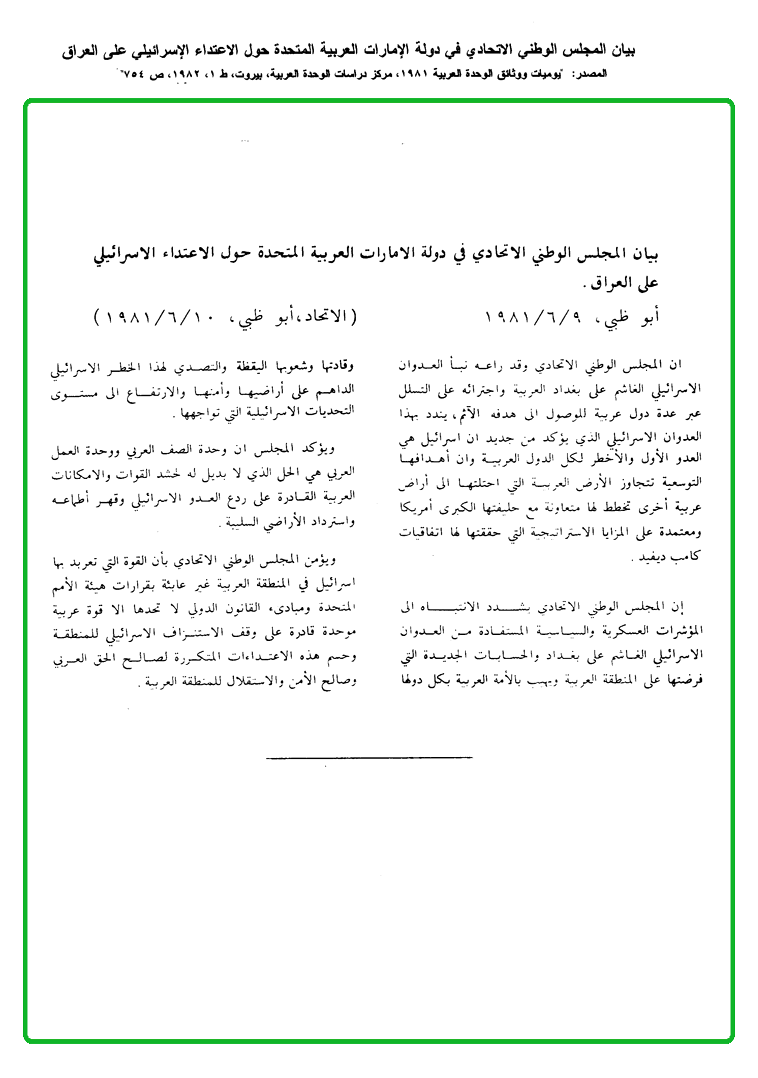 بيان المجلس الوطني الاتحادي في دولة الإمارات العربية المتحدة حول الاعتداء الإسرائيلي على العراق
المصدر: "يوميات ووثائق الوحدة العربية ١٩٨١، مركز دراسات الوحدة العربية، بيروت، ط ١، ١٩٨٢، ص ٧٥٤"
بيان المجلس الوطني الاتحادي في دولة الامارات العربية المتحدة حول الاعتداء الاسرائيلي
على العراق.
أبو ظبي، ٩/٦/١٩٨١
(الاتحاد، أبو ظبي، ١٠/٦/١٩٨١)
ان المجلس الوطني الاتحادي وقد راعه نبأ العدوان
الاسرائيلي الغاشم على بغداد العربية واجترائه على التسلل
عبر عدة دول عربية للوصول الى هدفه الآثم، يندد بهذا
العدوان الاسرائيلي الذي يؤكد من جديد ان اسرائيل هي
العدو الأول والأخطر لكل الدول العربية وان أهدافها
التوسعية تتجاوز الأرض العربية التي احتلتها الى أراض
عربية أخرى تخطط لها متعاونة مع حليفتها الكبرى أمريكا
ومعتمدة على المزايا الاستراتيجية التي حققتها لها اتفاقيات
كامب ديفيد.
إن المجلس الوطني الاتحادي يشدد الانتباه الى
المؤشرات العسكرية والسياسية المستفادة من العدوان
الاسرائيلي الغاشم على بغداد والحسابات الجديدة التي
فرضتها على المنطقة العربية ويهيب بالأمة العربية بكل دولها
وقادتها وشعوبها اليقظة والتصدي لهذا الخطر الاسرائيلي
الداهم على أراضيها وأمنها والارتفاع الى مستوى
التحديات الاسرائيلية التي تواجهها.
ويؤكد المجلس ان وحدة الصف العربي ووحدة العمل
العربي هي الحل الذي لا بديل له لحشد القوات والامكانات
العربية القادرة على ردع العدو الاسرائيلي وقهر أطماعه
واسترداد الأراضي السليبة.
ويؤمن المجلس الوطني الاتحادي بأن القوة التي تعربد بها
اسرائيل في المنطقة العربية غير عابئة بقرارات هيئة الأمم
المتحدة ومبادىء القانون الدولي لا تحدها الا قوة عربية
موحدة قادرة على وقف الاستنزاف الاسرائيلي للمنطقة
وحسم هذه الاعتداءات المتكررة لصالح الحق العربي
وصالح الأمن والاستقلال للمنطقة العربية.